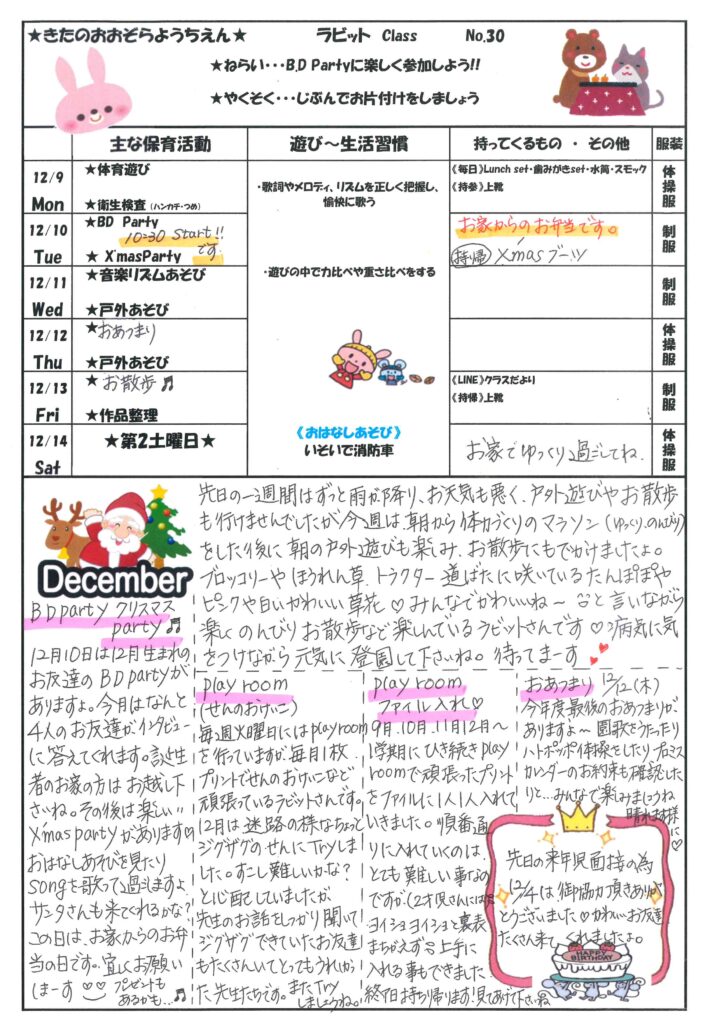 ★きたのおおぞらようちえん★ ラビット Class No.30
★ねらい・・・B.D Partyに楽しく参加しよう!!
★やくそく・・・じぶんでお片付けをしましょう
主な保育活動 遊び～生活習慣 持ってくるもの ・ その他 服装
12/9 Mon
★体育遊び
★衛生検査(ハンカチ・つめ)
・歌詞やメロディ、リズムを正しく把握し、
愉快に歌う
《毎日》Lunch set・歯みがきset・水筒・スモック
《持参》上靴
体操服
12/10 Tue
★BD Party
10:30 Start!!
★ X'masParty です.
お家からのお弁当です。
持帰 X'masブーツ
制服
12/11 Wed
★音楽リズムあそび
★戸外あそび
・遊びの中で力比べや重さ比べをする
制服
12/12 Thu
★おあつまり
★戸外あそび
体操服
12/13 Fri
★お散歩♬
★作品整理
《LINE》クラスだより
《持帰》上靴
制服
12/14 Sat
★第2土曜日★
《おはなしあそび》
いそいで消防車
お家でゆっくり過ごしてね.
体操服
December
先日の一週間はずっと雨が降り、お天気も悪く、戸外遊びやお散歩
も行けませんでしたが今週は朝から体力づくりのマラソン(ゆっくり.のんびり)
をした後に朝の戸外遊びも楽しみ、お散歩にもでかけましたよ。
ブロッコリーやほうれん草.トラクター道ばたに咲いているたんぽぽや
ピンクや白いかわいい草花♡みんなでかわいいね～と言いながら
楽しくのんびりお散歩など楽しんでいるラビットさんです♡病気に気
をつけながら元気に登園して下さいね。待ってまーす
BDparty クリスマス
party♬
12月10日は12月生まれの
お友達のBDpartyが
ありますよ。今月はなんと
4人のお友達がインタビュー
に答えてくれます。誕生
者のお家の方はお越し下
さいね。その後は楽しい
X'mas partyがあります♡
おはなしあそびを見たり
songを歌って過ごしますよ
サンタさんも来てくれるかな?
この日は、お家からのお弁
当の日です。宜しくお願い
しまーす プレゼントも
あるかも…♬
play room
(せんのおけいこ)
毎週火曜日にはplayroom
を行っていますが毎月1枚
プリントでせんのおけいこなど
頑張っているラビットさんです。
12月は迷路の様なちょっと
ジグザグのせんにTryしま
した。すこし難しいかな?
と心配していましたが
先生のお話をしっかり聞いて
ジグザグできていたお友達
もたくさんいてとってもうれしかっ
た先生たちです。またTry
しましょうね。
play room
ファイル入れ♡
9月.10月.11月12月～
1学期にひき続きplay
roomで頑張ったプリント
をファイルに1人1人入れて
いきました。順番通
りに入れていくのは、
とても難しい事なの
ですが(2才児さんには)
ヨイショヨイショと裏表
まちがえずに上手に
入れる事もできました
終了日持ち帰ります!見てあげて下さいね
おあつまり 12/12(木)
今年度最後のおあつまりが
ありますよ～園歌をうたったり
ハトポッポ体操をしたりプロミス
カレンダーのお約束も確認した
りと…みんなで楽しみましょうね
晴れます様に♡
先日の来年児面接の為
12/4は、御協力頂きありが
とうございました♡かわいいお友達
たくさん来てくれましたよ。
HAPPY BIRTHDAY